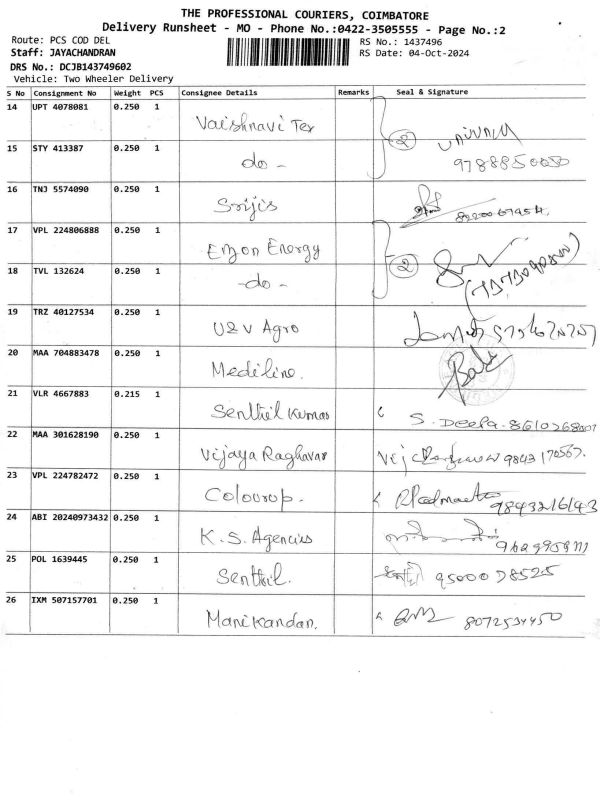 THE PROFESSIONAL COURIERS, COIMBATORE
Delivery Runsheet - MO - Phone No.:0422-3505555 - Page No.:2
Route: PCS COD DEL RS No.: 1437496
Staff: JAYACHANDRAN RS Date: 04-Oct-2024
DRS No.: DCJB143749602
Vehicle: Two Wheeler Delivery
S No Consignment No Weight PCS Consignee Details Remarks Seal & Signature
14 UPT 4078081 0.250 1 Vaishnavi Tex 2
15 STY 413387 0.250 1 do -
16 TNJ 5574090 0.250 1 Srijis
17 VPL 224806888 0.250 1 Enjon Energy 2
18 TVL 132624 0.250 1 -do-
19 TRZ 40127534 0.250 1 U&V Agro
20 MAA 704883478 0.250 1 Mediline.
21 VLR 4667883 0.215 1 Senthil Kumar S. Deepa - 8610268007
22 MAA 301628190 0.250 1 Vijaya Raghavar 9843170567.
23 VPL 224782472 0.250 1 Colourop. 9843216143
24 ABI 20240973432 0.250 1 K. S. Agencies
25 POL 1639445 0.250 1 Senthil. 9500078525
26 IXM 507157701 0.250 1 Manikandan. 8072534450